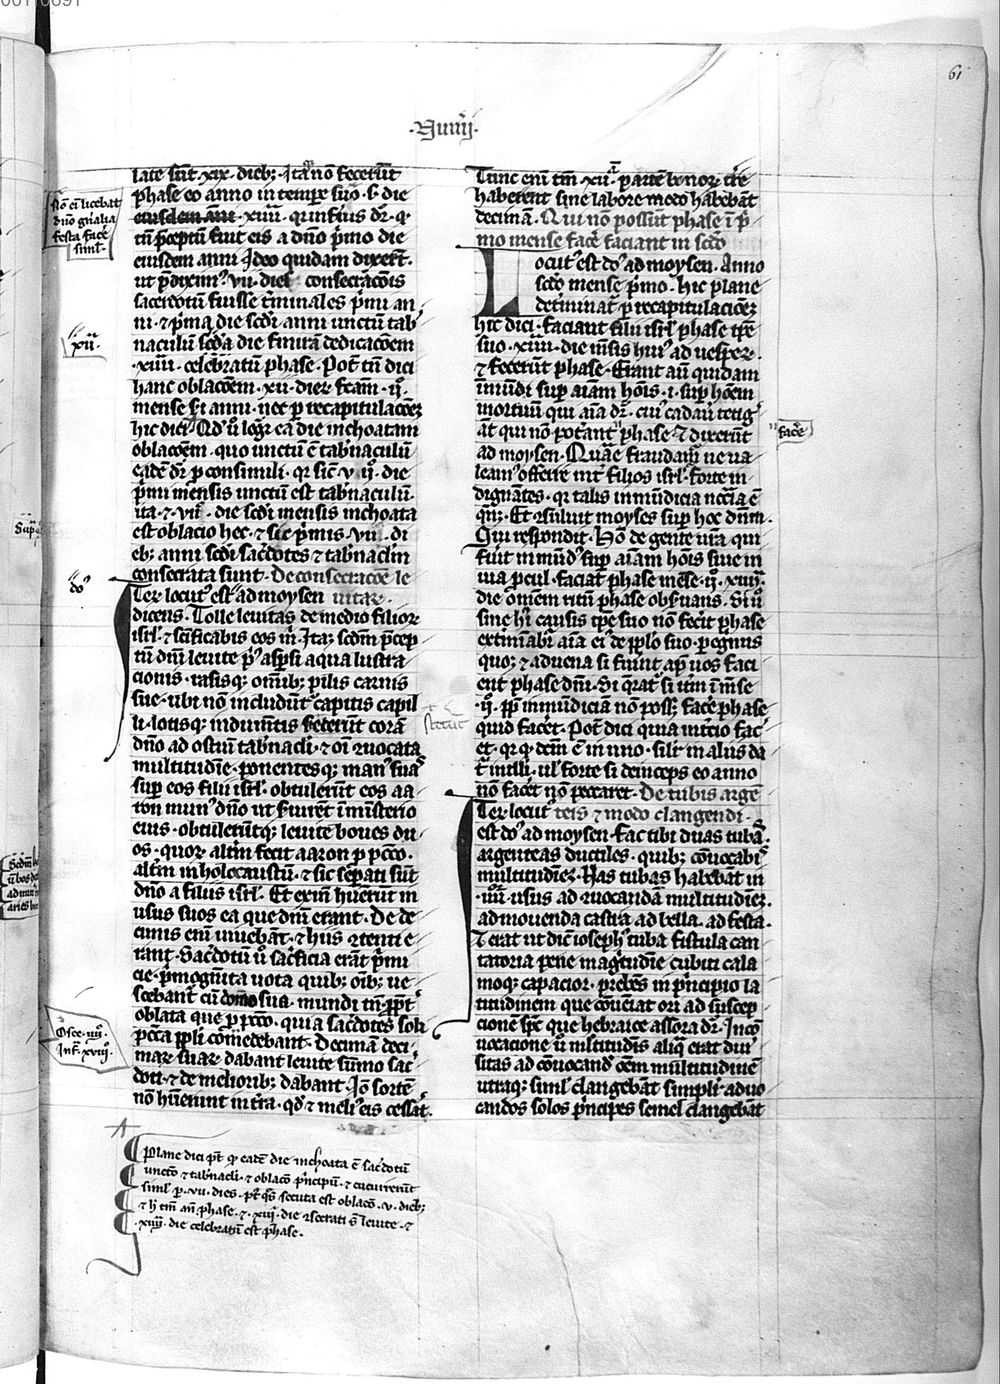 61
·Nūīj·
late sūt xix· dieb; Itaq̄ nō fecerūt
phase eo anno in tempr̄e suo· s̄ die
eiusdem ani· xiiii· quin fuīs dr̄· q·
tn̄ p̄ceptū fuit eis a dn̄o p̄mo die
eiusdem anni Ideo quidam dixer̄t·
ut p̄dixim᷒· vii· dies consecrac̄ois
sacerdotū fuisse t̄minales p̄mi an
ni· ⁊ p̄ma die scd̄i anni unctū tab̄
naculū scd̄a die finita dedicac̄oem
·xiiii· celebratū phase· Pot̄ tn̄ dici
hanc oblac̄oem· xii· dier̄ fc̄am· ii᷒·
mense s̄i anni· nec p̄ recapitulac̄oez
hic dici Qd̄ ū log̅ ea die inchoatam
oblac̄oem· quo unctū ē tab̄naculū
eadē dr̄ p̄ consimili· qr̄ sic̄ v ii᷒· die
p̄mi mensis unctū est tab̄naculū·
ita· ⁊ vii᷒· die scd̄i mensis inchoata
est oblacio hec· ⁊ sic p̄mis· vii· di
eb; anni scd̄i sac̄dotes ⁊ tab̄naclm̄
consecrata sunt· De consecrac̄oe le
Ter locut᷒ est ad moysen uitar̄·
dicens· Tolle leuitas de medio filior̄
isrl̄· ⁊ sc̄ificabis eos m̄· Ita; scd̄m p̄cep
tū dn̄i leuite p᷒ asp̄si aqua lustra
cionis· rasisq; om̄ib; pilis carnis
sue· ubi nō includūt᷒ capitis capil
li· lotisq; indum̄tis steterūt corā
dn̄o ad ostiū tab̄nacl̄i· ⁊ oī ōuocata
multitudīe· ponentesq; man᷒ suas
sup̄ eos filii isrl̄· obtulerūt eos aa
ron mun᷒ dn̄o ut s̄uirēt ī mīsterio
eius· obtulerūtq; leuite boues du
os· quor̄ alt̄m fecit aaron p̄ pc̄co·
alt̄m in holocaustū· ⁊ sic sep̄ati sūt
dn̄o a filiis isrl̄· Et exin̄ huerūt in
usus suos ea que dn̄i erant· De de
cimis enī uiuebāt· ⁊ hiis ⁊tenti e
rant· Sac̄dotū ū sac̄ficia erāt p̄mi
cie· p̄mogēita uota quib; oīb; ue
scebant᷒ cū domo sua· mundi tn̄· pp̄t᷒
oblata que p̄ pc̄co· quia sac̄dotes soli
pc̄ca pp̄li comedebant· Decimā deci
mar̄ suar̄ dabant leuite sūmo sac̄
doti· ⁊ de meliorib; dabant· Iō sortē
nō huerunt in t̄ra· qd̄ ⁊ meli᷒ eis cessit·
Tunc enī tm̄· xii᷒· p̄ auē bonor̄ tr̄e
haberent sine labore modo habebāt
decimā· Qui nō possūt phase ī p̄
mo mense fac̄e faciant in scd̄o
Locut᷒ est do᷒ ad moysen· Anno
scd̄o mense p̄mo· hic plane
det̄minat᷒ p̄ recapitulac̄oez
hic dici· faciant filii isrl̄ phase tp̄e
suo· xiiii· die mēsis hui᷒ ad uesper̄·
⁊ fecerūt phase· Erant aū quidam
īmūdi sup̄ aīam hōis· i· sup̄ hōiem
mortuū qui aīa dr̄· cui᷒ cadau᷒ tetig᷒
āt qui nō pot̄ant phase· ⁊ dixerūt
ad moysen· Quare fraudam᷒ ne ua
leam᷒ offerre int̄ filios isrl̄· forte in
dignātes· qr̄ talis inmūdicia nec̄ia ē
qn̄q;· Et ⁊suluit moyses sup̄ hoc dn̄m·
Qui respondit· Hō de gente ura qui
fuit inmūd᷒ sup̄ aīam hōis siue in
uia p̄cul· faciat phase mēse· ii᷒· xiiii·
die· ōmem ritū phase obs̄uans· Si ū
sine hiis causis tp̄e suo nō fec̄it phase
ext̄minabit᷒ aīa ei᷒ de pp̄lo suo· p̄egrinis
quoq; ⁊ aduena si fuīnt ap̄ uos faci
ent phase dn̄i· Si q̄rat᷒ si itm̄ ī mēse
·ii᷒· pp̄ inmūdiciā nō poss̄ fac̄e phase
quid fac̄et· Pot̄ dici quia initio fac̄
et· qr̄ q̄ dem ē in uno· silr̄ in aliis da
t᷒ intlli· ul̄ forte si deinceps eo anno
nō fac̄et nō peccaret· De tubis arge
Ter locut᷒ teis ⁊ modo clangendi·
est do᷒ ad moysen· fac tibi duas tubas
argenteas ductiles· quib; cōuocabis
multitudinez· Has tubas habebāt in
·iiiior· usus ad ōuocandā multitudinez·
ad mouenda castra· ad bella· ad festa·
⁊ erat ut dic̄ ioseph᷒ tuba fistula can
tatoria pene mag̅tudīe cubiti cala
moq; capacior· prebēs in p̄ncipio la
titudinem que cōueniat ori ad suscep
cionē sp̄c que hebraice assora dr̄· In cō
uocacione ū mltitudis aliq̄ erat diu᷒
sitas ad cōuocand᷒ oēm multitudinē
utraq; siml̄ clangebāt simpli᷒· ad uo
candos solos p̄ncipes semel clangebāt
Nō eī licebat
dn̄o gn̄alia
festa fac̄e
siml̄·
·xii·
do᷒
Osee· iiii·
Inf̄· xviij·
fac̄e
Plane dici pt̄ q̄ eadē die inchoata ē sac̄dotū
unctō ⁊ tab̄nacli· ⁊ oblacō p̄ncipū· ⁊ cucurrerūt
siml̄· p̄· vii· dies· pt̄ q̄s secuta est oblacō· v· dieb;
⁊ h̄ tm̄ an̄ phase· ⁊· xiij· die ⁊secrati s̄ leuite· ⁊
·xiiij· die celebratū est phase·